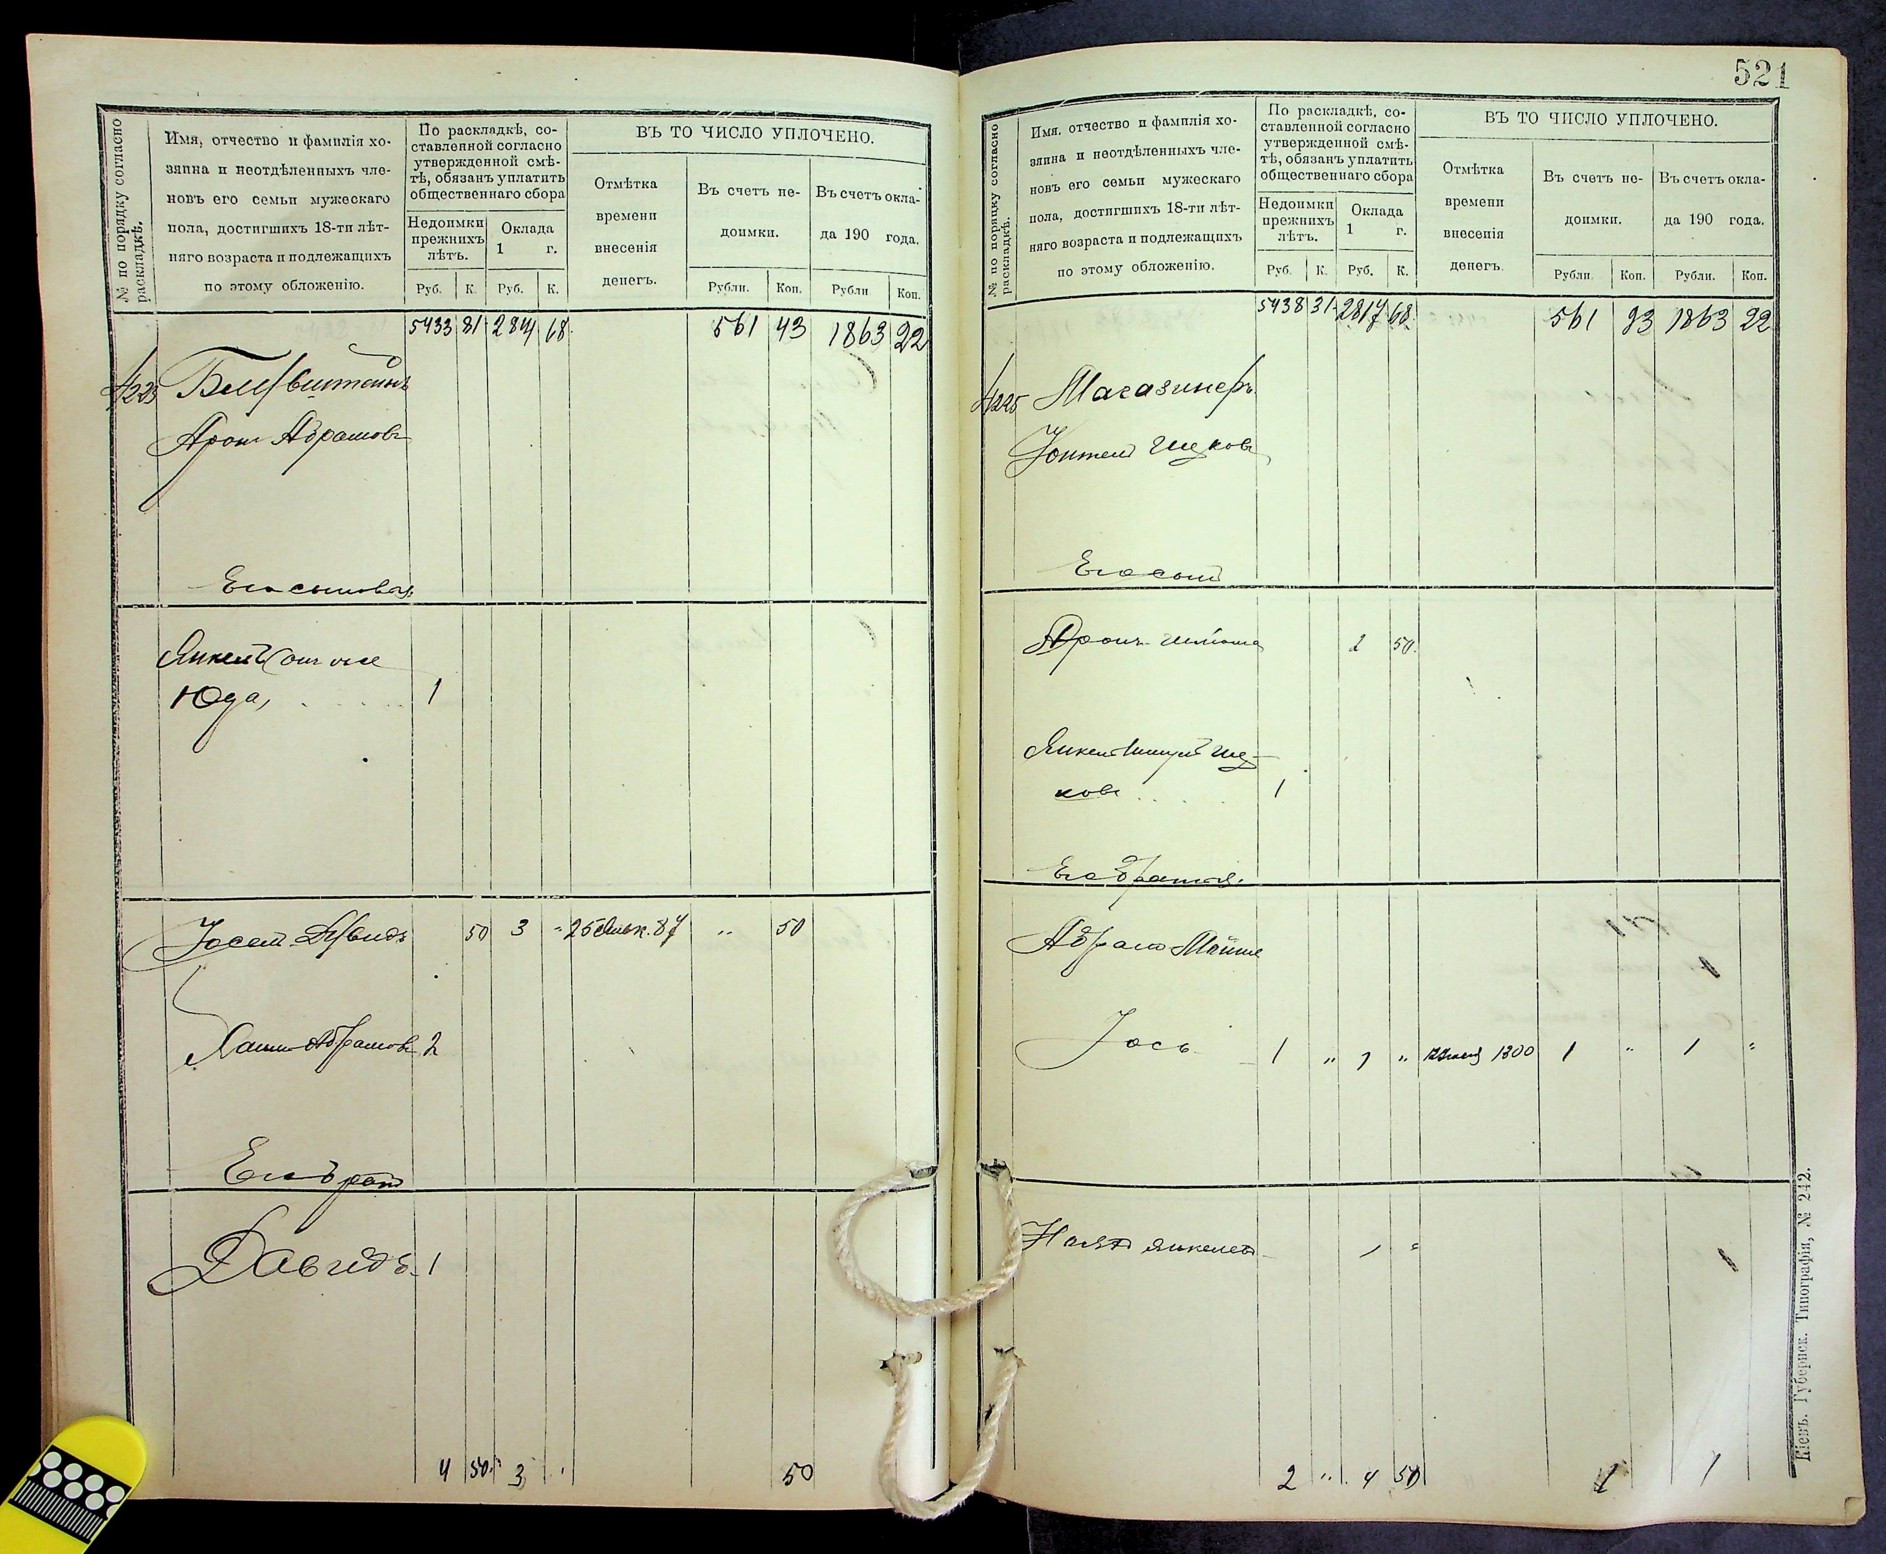 № по порядку согласно раскладкѣ.
Имя, отчество и фамилія хо-
зяина и неотдѣленныхъ чле-
новъ его семьи мужескаго
пола, достигшихъ 18-ти лѣт-
няго возраста и подлежащихъ
по этому обложенію.
По раскладкѣ, со-
ставленной согласно
утвержденной смѣ-
тѣ, обязанъ уплатить
общественнаго сбора
Недоимки
прежнихъ
лѣтъ.
Оклада
1 г.
Руб. К. Руб. К.
ВЪ ТО ЧИСЛО УПЛОЧЕНО.
Отмѣтка
времени
внесенія
денегъ.
Въ счетъ не-
доимки.
Въ счетъ окла-
да 190 года.
Рубли. Коп. Рубли Коп.
5433 81 2814 68 561 43 1863 22
1223
Аронъ Абрамовъ
Его сыновья
Юда, 1
Іосель Давидъ 50 3 " 25 87 " 50
Абрамовъ 2
Его братъ
Давидъ 1
4 50 3 50
521
№ по порядку согласно раскладкѣ.
Имя, отчество и фамилія хо-
зяина и неотдѣленныхъ чле-
новъ его семьи мужескаго
пола, достигшихъ 18-ти лѣт-
няго возраста и подлежащихъ
по этому обложенію.
По раскладкѣ, со-
ставленной согласно
утвержденной смѣ-
тѣ, обязанъ уплатить
общественнаго сбора
Недоимки
прежнихъ
лѣтъ.
Оклада
1 г.
Руб. К. Руб. К.
ВЪ ТО ЧИСЛО УПЛОЧЕНО.
Отмѣтка
времени
внесенія
денегъ
Въ счетъ не-
доимки.
Въ счетъ окла-
да 190 года.
Рубли. Коп. Рубли. Коп.
5438 31 2817 68 561 93 1863 22
1225 Магазинеръ
Ицковъ
Его сынъ
Аронъ Шлiома 2 50
Янкель Иц-
ковъ 1
Его братья
Абрамъ Мойше
Іось 1 " 1 " 1900 1 " 1 "
Янкелевъ 1 "
2 " 4 50 1 1
Кіевъ. Губернск. Типографія, № 242.